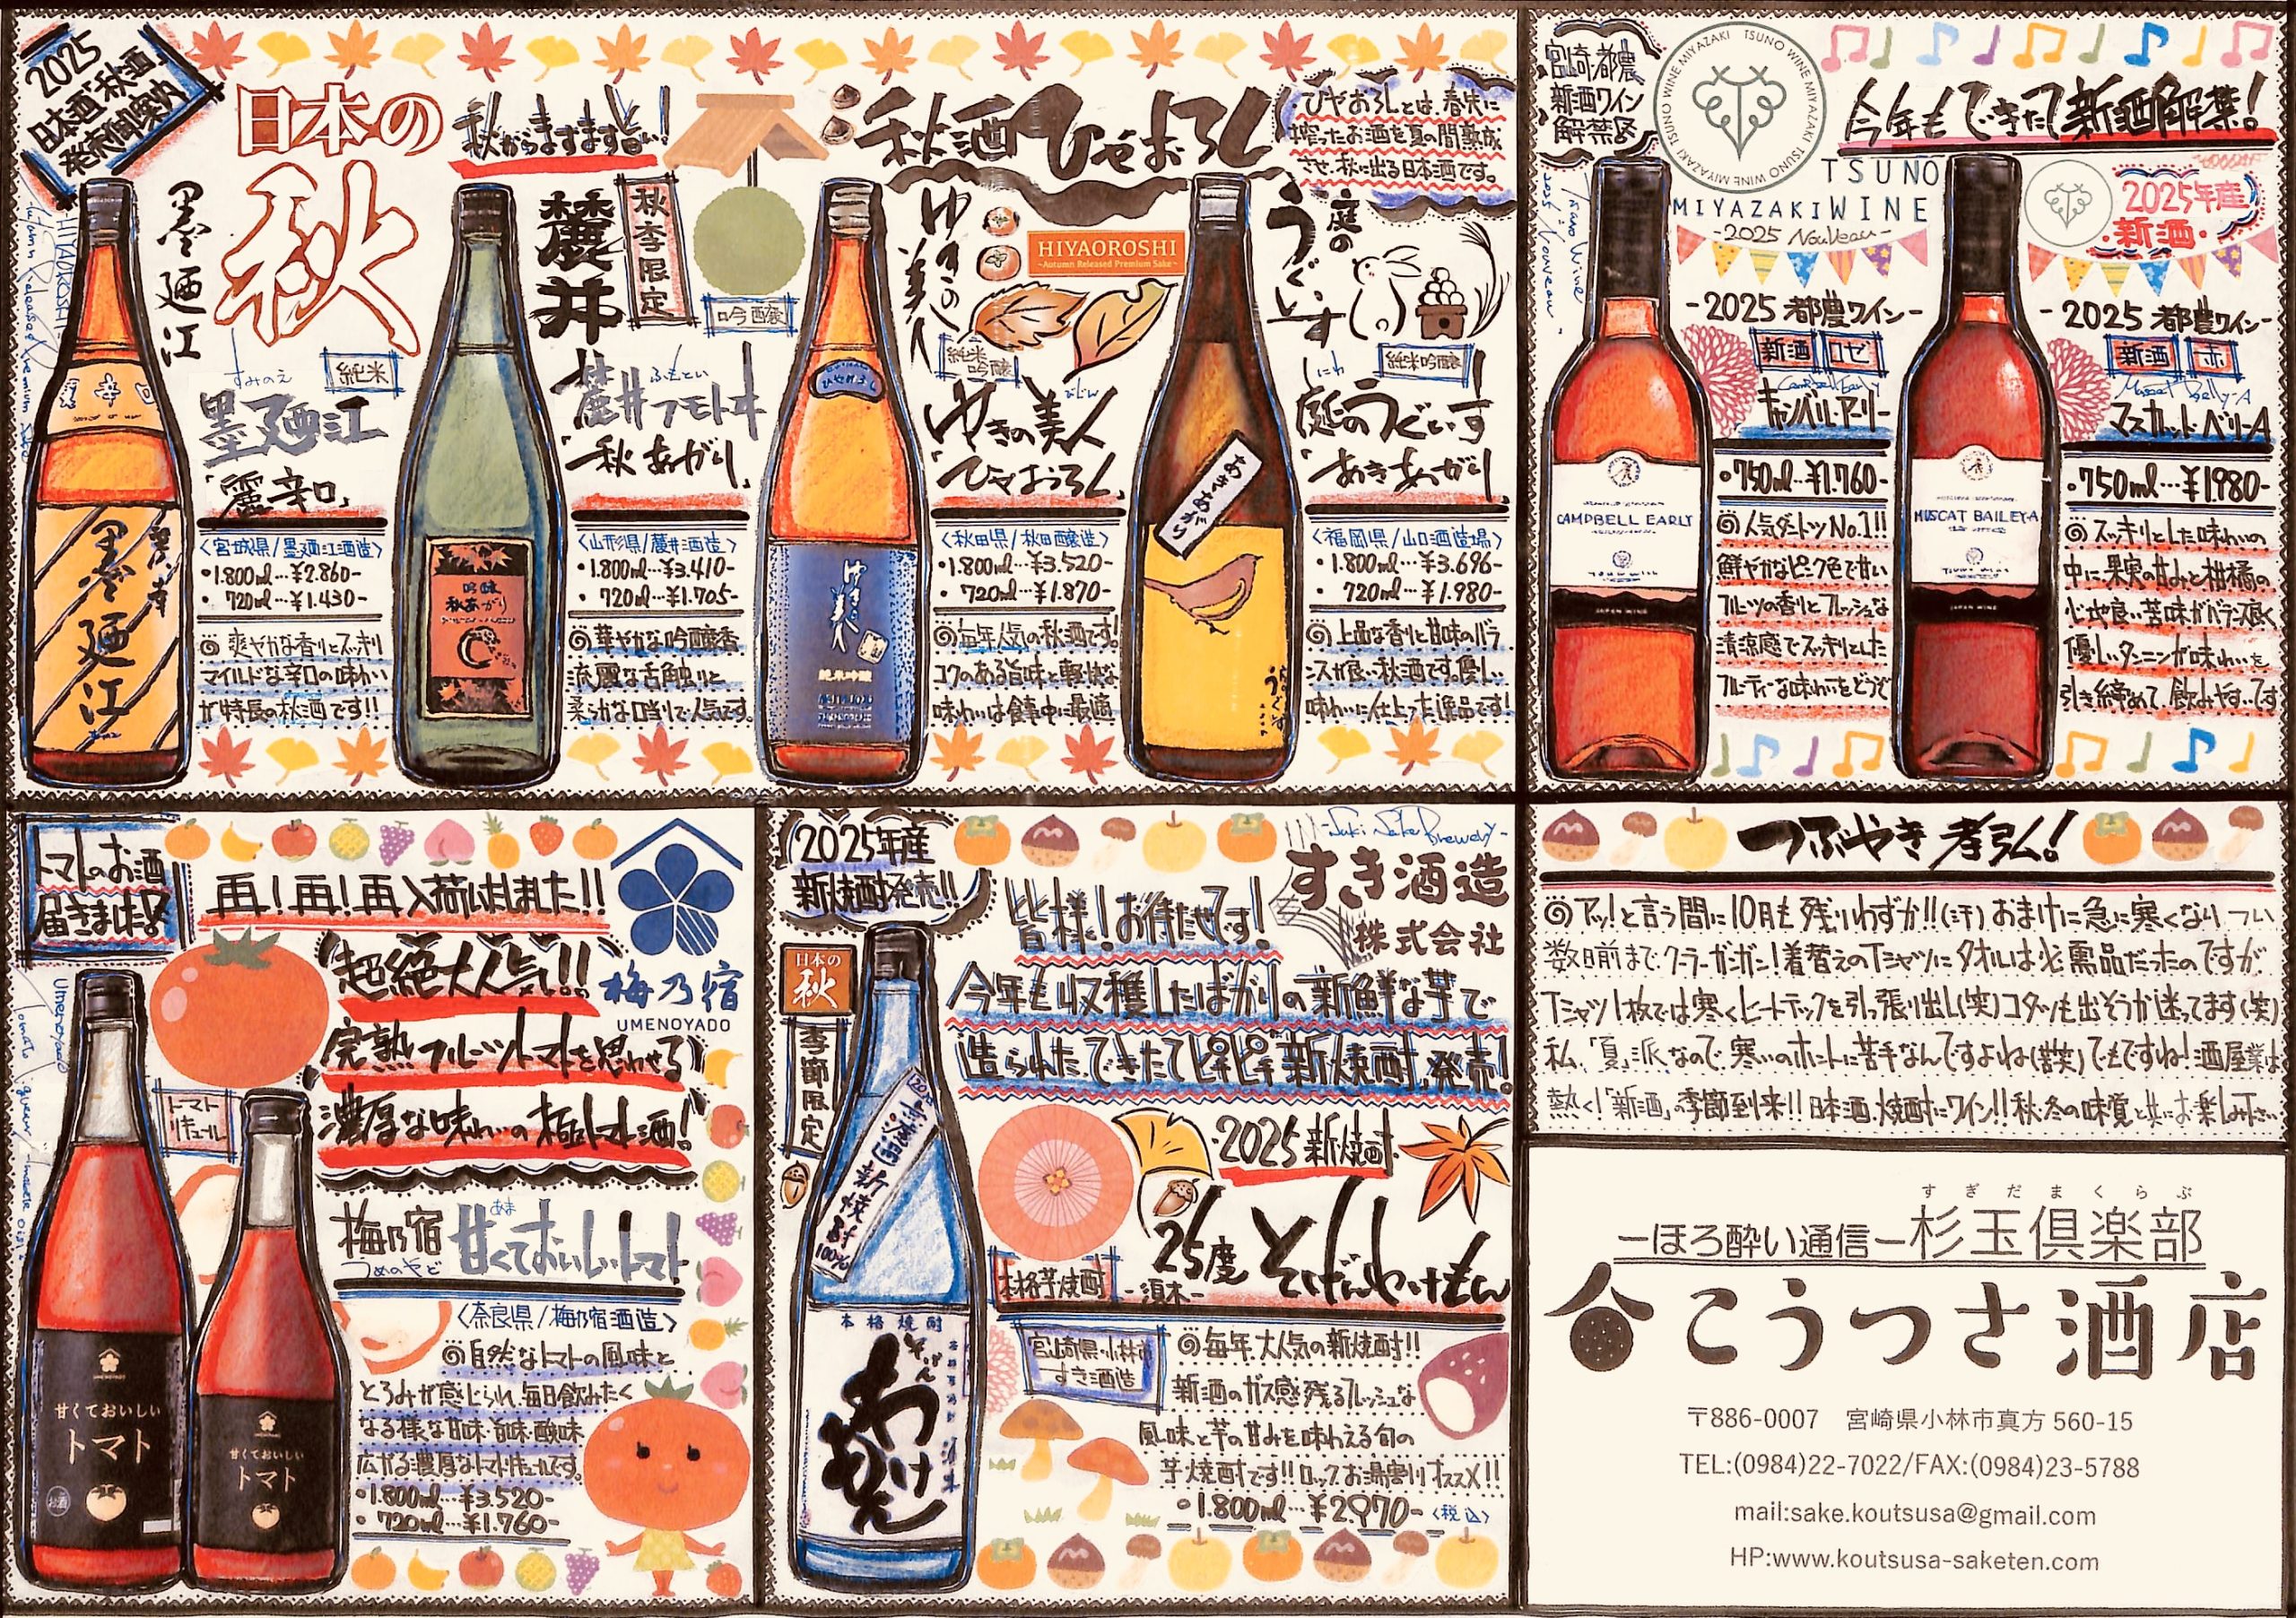 2025
日本酒「秋酒」
発売御案内
日本の
秋
秋からますます旨い!
秋酒ひやおろし
ひやおろしとは、春先に
搾ったお酒を夏の間熟成
させ、秋に出る日本酒です。
HIYAOROSHI
Autumn Released Premium Sake
墨廼江
すみのえ
純米
墨廼江
「麗辛口」
<宮城県/墨廼江酒造>
・1.800ml…¥2.860-
・720ml…¥1.430-
◎爽やかな香りとスッキリ
マイルドな辛口の味わい
が特長の秋酒です!!
墨廼江
麓井
秋季限定
吟醸
ふもとい
麓井フモトヰ
「秋あがり」
<山形県/麓井酒造>
・1.800ml…¥3.410-
・720ml…¥1.705-
◎華やかな吟醸香
流麗な舌触りと
柔らかな口当りで人気です。
吟醸
秋あがり
ゆきの美人
HIYAOROSHI
~Autumn Released Premium Sake~
純米
吟醸
びじん
ゆきの美人
「ひやおろし」
<秋田県/秋田醸造>
・1.800ml…¥3.520-
・720ml…¥1.870-
◎毎年人気の秋酒です!
コクのある旨味と軽快な
味わいは食事中に最適
ひやおろし
ゆきの美人
純米吟醸
庭の
うぐいす
純米吟醸
にわ
庭のうぐいす
「あきあがり」
<福岡県/山口酒造場>
・1.800ml…¥3.696-
・720ml…¥1.980-
◎上品な香りと甘味のバラ
ンスが良い秋酒です。優しい
味わいに仕上った逸品です!
あきあがり
うぐいす
宮崎・都農
新酒ワイン
解禁図
TSUNO WINE MIYAZAKI TSUNO WINE MIYAZAKI TSUNO WINE MIYAZAKI
今年もできたて新酒解禁!
TSUNO
MIYAZAKI WINE
-2025 Nouveau-
Tsuno Wine
2025 Nouveau
2025年産
・新酒・
-2025 都農ワイン-
新酒 ロゼ
Campbell Early
キャンベル・アーリー
・750ml…¥1.760-
◎人気ダントツNo.1!!
鮮やかなピンク色で甘い
フルーツの香りとフレッシュな
清涼感でスッキリとした
フルーティーな味わいをどうぞ
CAMPBELL EARLY
JAPAN WINE
-2025 都農ワイン-
新酒 赤
Muscat Bailey-A
マスカット・ベリーA
・750ml…¥1.980-
◎スッキリとした味わいの
中に果実の甘みと柑橘の
心地良い苦味がバランス良く
優しいタンニンが味わいを
引き締めて、飲みやすいです
MUSCAT BAILEY-A
JAPAN WINE
トマトのお酒
届きました!
再!再!再入荷いたしました!!
梅乃宿
UMENOYADO
「超絶大人気!!」
完熟フルーツトマトを思わせる
濃厚な味わいの極上トマト酒!
Umenoyado
Tomato Liqueur
トマト
リキュール
梅乃宿
うめのやど
あま
甘くておいしいトマト
<奈良県/梅乃宿酒造>
◎自然なトマトの風味と
とろみが感じられ、毎日飲みたく
なる様な甘味・旨味・酸味
広がる濃厚なトマトリキュールです。
・1.800ml…¥3.520-
・720ml…¥1.760-
UMENOYADO
甘くておいしい
トマト
お酒
甘くておいしい
トマト
2025年産
新焼酎発売!!
-Suki Sake Brewery-
すき酒造
株式会社
皆様!お待たせです!
今年も収穫したばかりの新鮮な芋で
造られた、できたてピチピチ「新焼酎」発売!
日本の
秋
季節限定
・2025新焼酎・
25度 そげんわけもん
本格芋焼酎
-須木-
宮崎県・小林市
すき酒造
◎毎年大人気の新焼酎!!
新酒のガス感残るフレッシュな
風味と芋の甘みを味わえる旬の
芋焼酎です!!ロック、お湯割りオススメ!!
・1.800ml…¥2.970-<税込>
新焼酎
100%
本格焼酎
そげん
わけもん
須木
つぶやき孝弘!
◎アッ!と言う間に10月も残りわずか!!(汗)おまけに急に寒くなり、つい
数日前まで、クーラーガンガン!着替えのTシャツにタオルは必需品だったのですが
Tシャツ1枚では寒くヒートテックを引っ張り出し(笑)コタツも出そうか迷ってます(笑)
私、「夏」派なので、寒いのホントに苦手なんですよね(苦笑)でもですね!酒屋業は
熱く!「新酒」の季節到来!!日本酒、焼酎にワイン!!秋・冬の味覚と共にお楽しみ下さい
すぎだまくらぶ
ーほろ酔い通信ー杉玉倶楽部
こうつさ酒店
〒886-0007 宮崎県小林市真方 560-15
TEL:(0984)22-7022/FAX:(0984)23-5788
mail:sake.koutsusa@gmail.com
HP:www.koutsusa-saketen.com